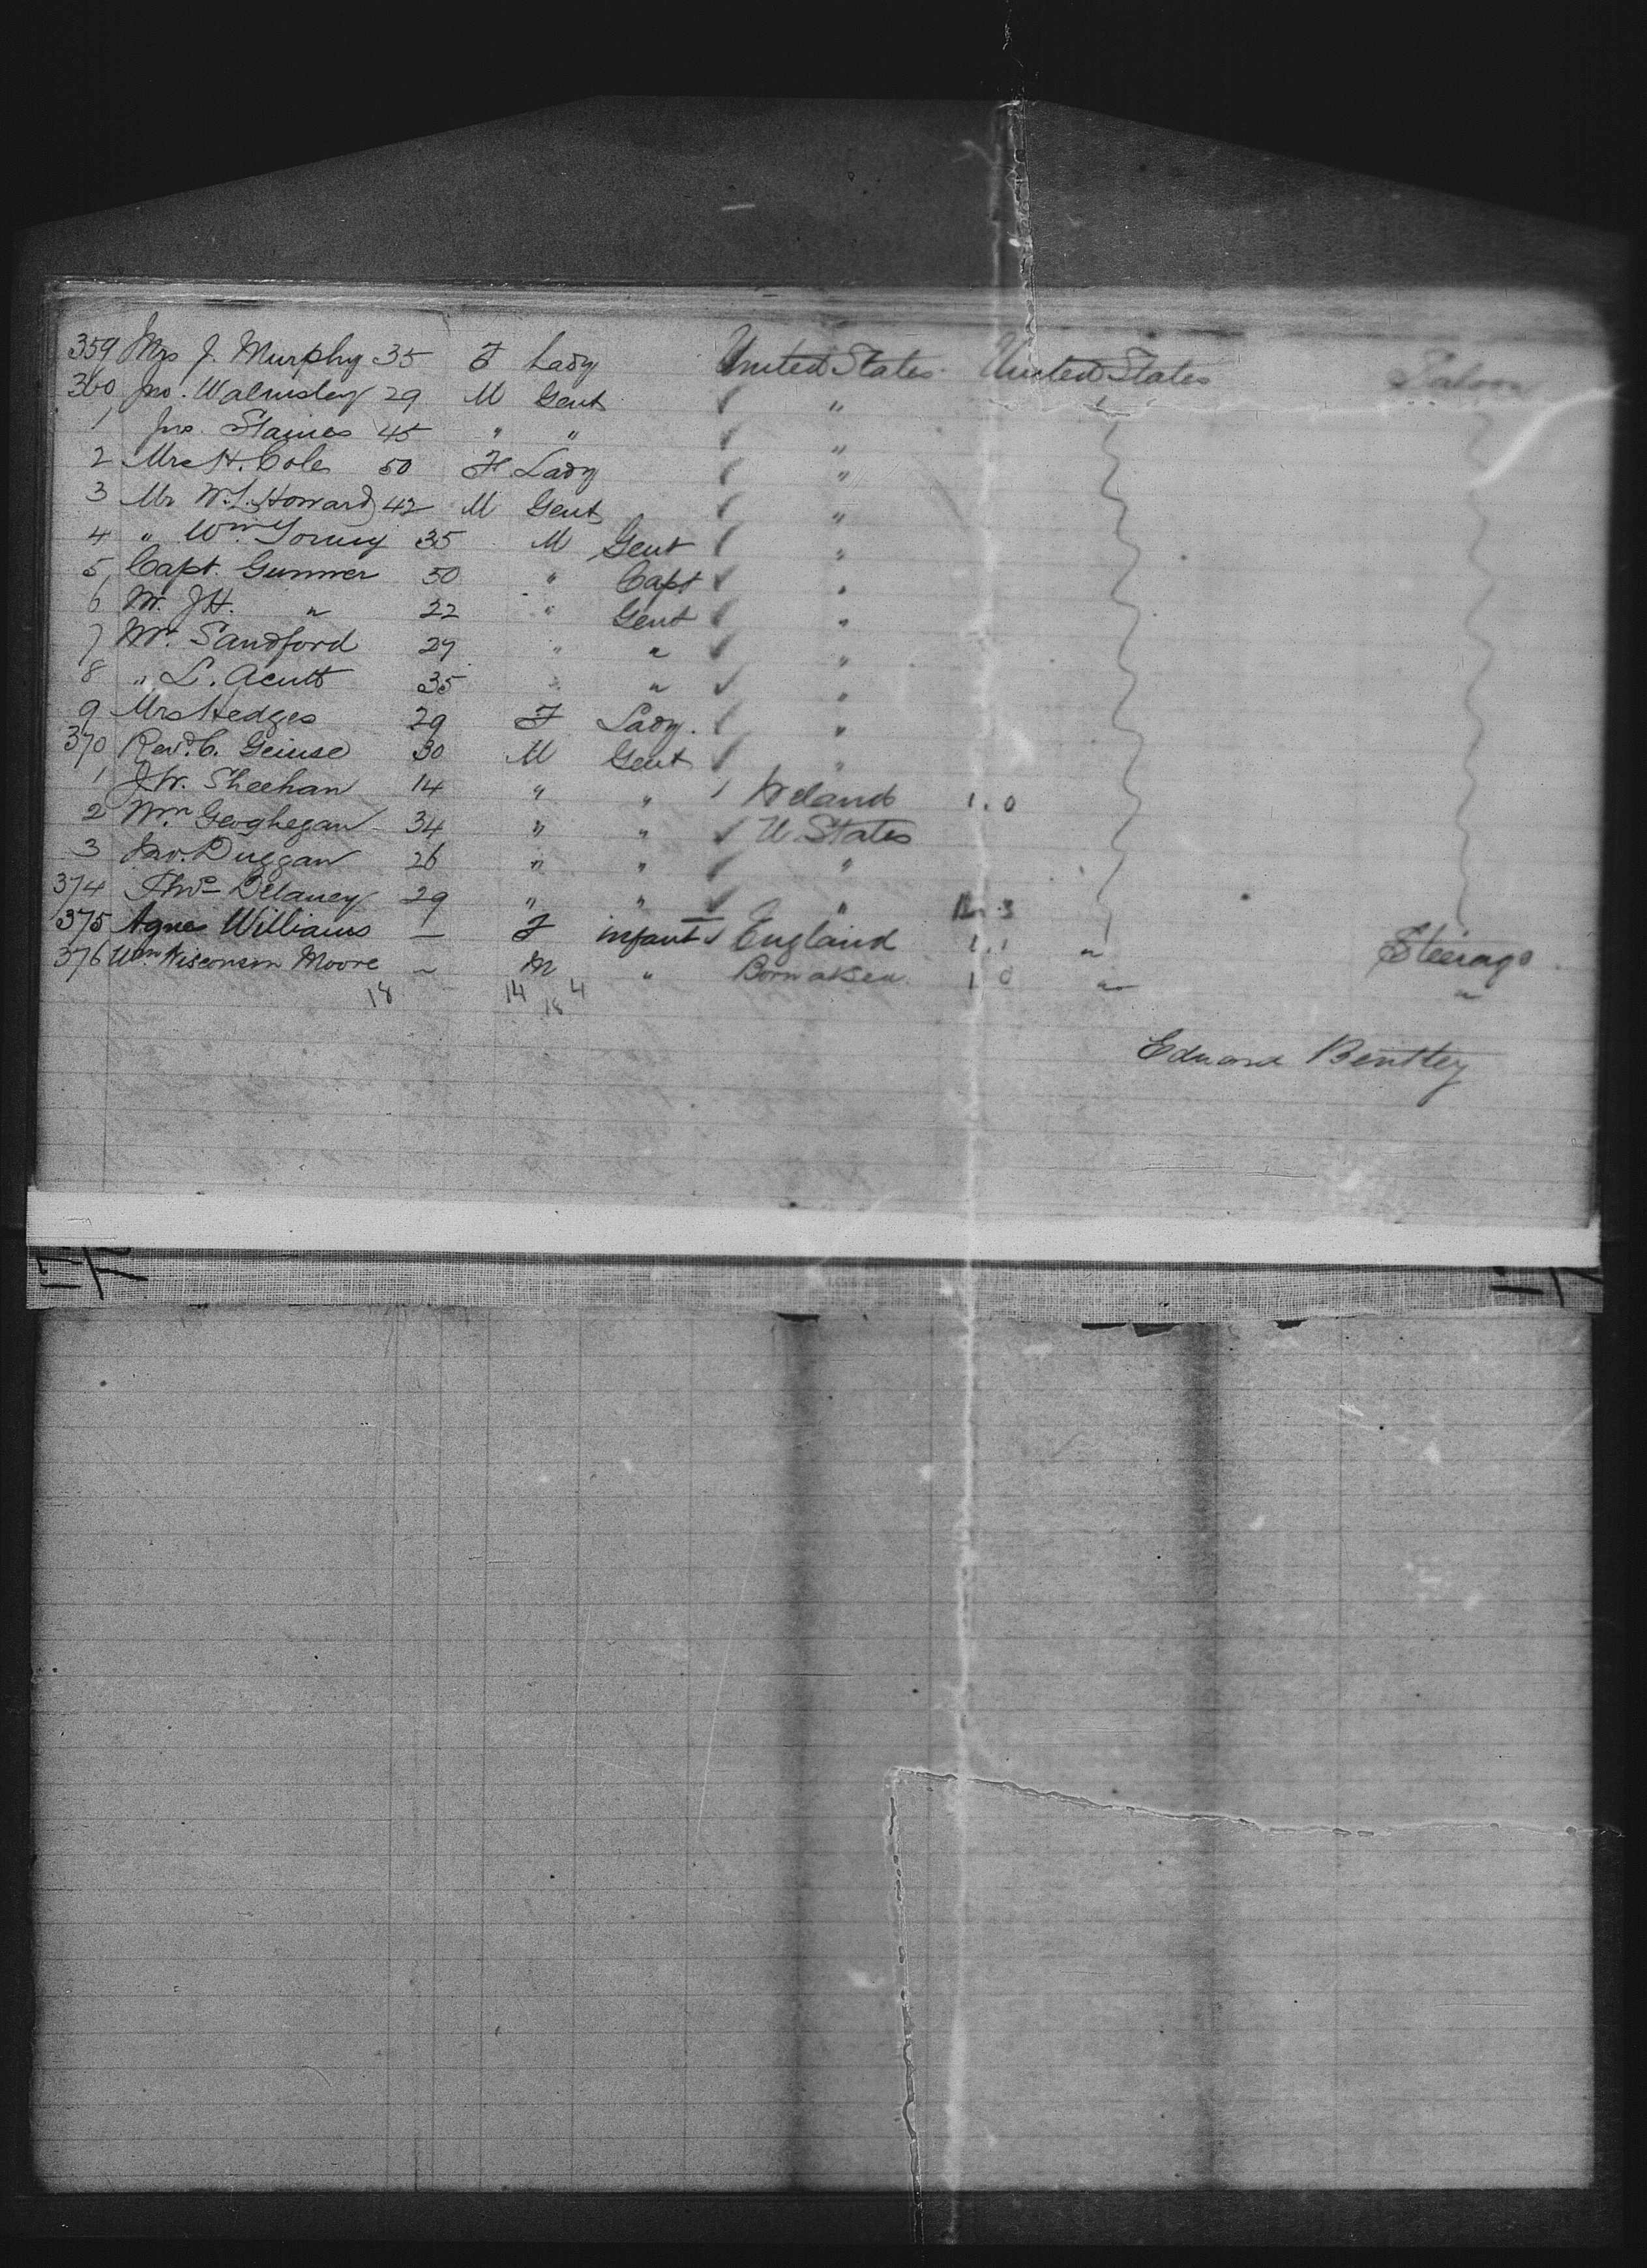 359 Mrs J. Murphy 35 F Lady United States United States Saloon
360 Jno. Walmsley 29 M Gent ✓ "
1 Jno. Staines 45 " " ✓ "
2 Mrs H. Cole 50 F Lady ✓ "
3 Mr W. L. Howard 42 M Gent ✓ "
4 " Wm 35 M Gent ✓ "
5 Capt. Gunner 50 " Capt ✓ "
6 Mr. J H. " 22 " Gent ✓ "
7 Mr. Sandford 29 " " ✓ "
8 " L. Acutt 35 " " ✓ "
9 Mrs Hedges 29 F Lady. ✓ "
370 Revd. C. 30 M Gent ✓ "
1 J W. Sheehan 14 " " ✓ Ireland 1.0
2 Wm Geoghegan 34 " " ✓ U. States
3 Jno. Duggan 26 " " ✓ "
374 Thos Delaney 29 " " ✓ "
375 Agnes Williams — F infant ✓ England 1.1 " Steerage
376 Wm Wisconsin Moore — M " Born at Sea 1 0 " "
18 14 4
18
Edward Bentley